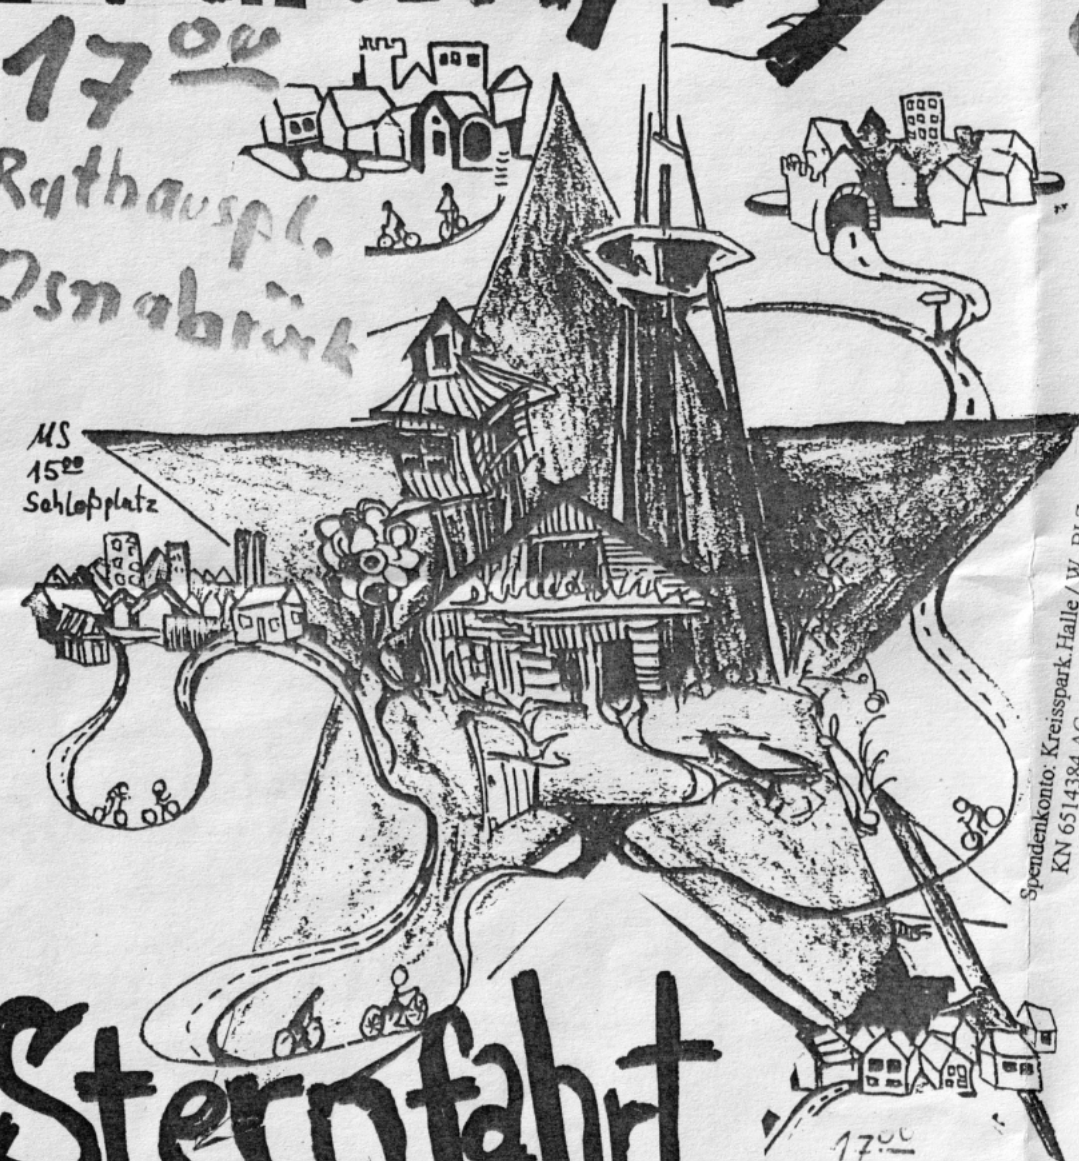 17⁰⁰
Rathauspl.
Osnabrück
MS
15⁰⁰
Schloßplatz
Spendenkonto: Kreisspark.Halle / W. BLZ
KN 6514384
Sternfahrt
17⁰⁰